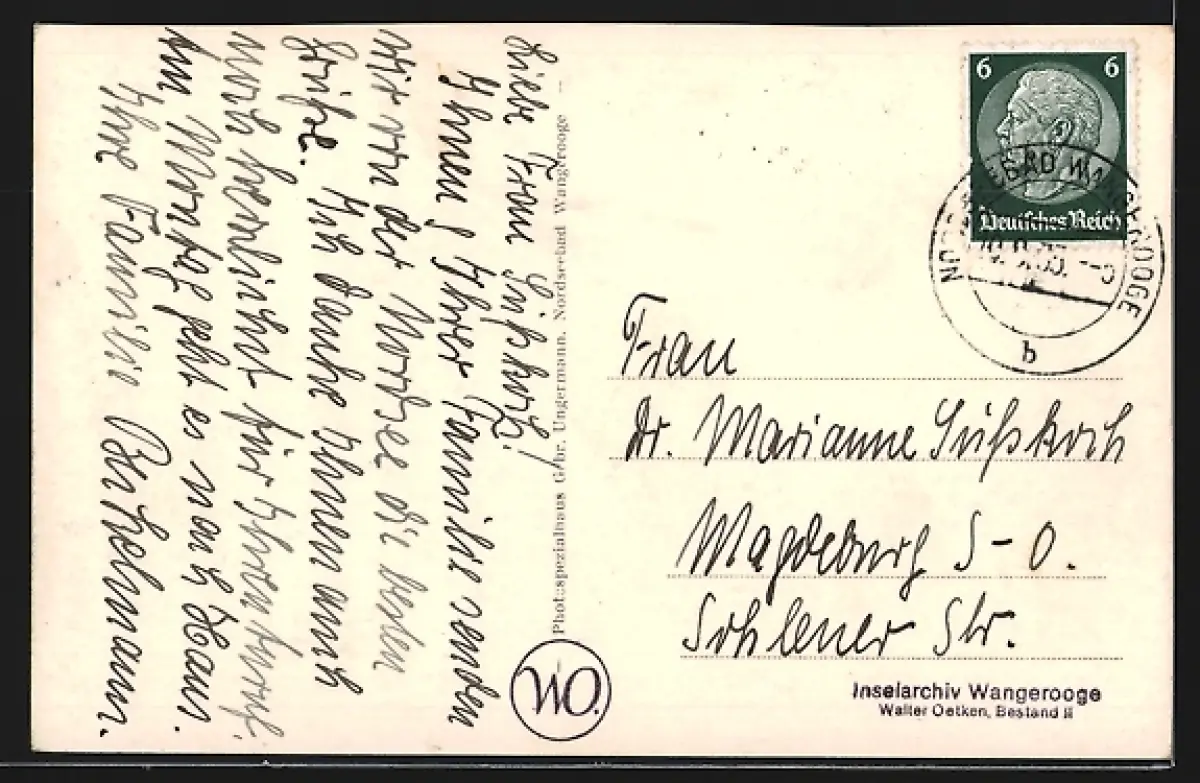 Liebe Frau Süßkoch!
Ihnen & Ihrer Familie senden
wir von der Nordsee die besten
Grüße. Ich danke Ihnen auch
noch herzlichst für Ihren
Am Montag geht es nach Haus.
Ihre Familie
Photospezialhaus Gebr. Ungermann, Nordseebad Wangerooge
WO.
6 6
Deutsches Reich
NORDSEEBAD WANGEROOGE
b
Frau
Dr. Marianne Süßkoch
Magdeburg S-O.
Str.
Inselarchiv Wangerooge
Walter Oetken, Bestand II